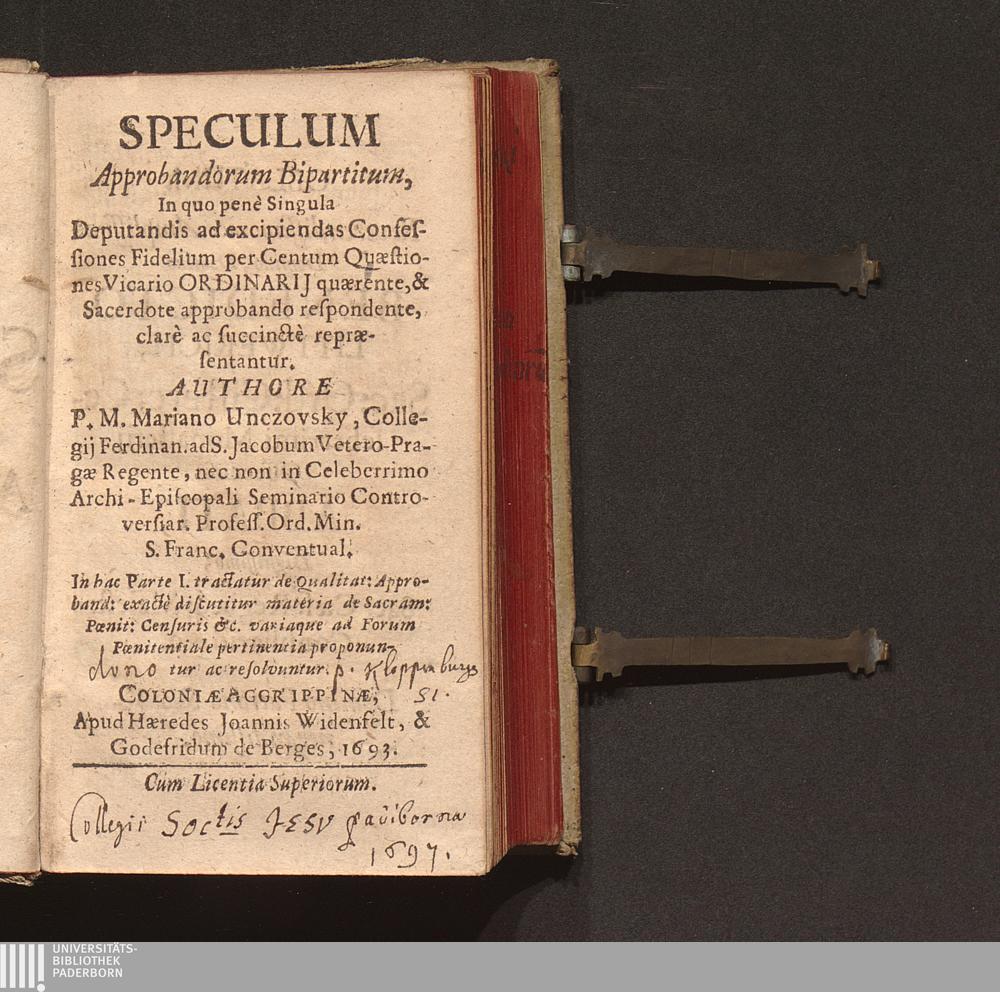 SPECULUM
Approbandorum Bipartitum,
In quo penè Singula
Deputandis ad excipiendas Confeſ-
ſiones Fidelium per Centum Quæſtio-
nes Vicario ORDINARIJ quærente, &
Sacerdote approbando reſpondente,
clarè ac ſuccinctè repræ-
ſentantur.
AUTHORE
P. M. Mariano Unczovsky, Colle-
gij Ferdinan. ad S. Jacobum Vetero-Pra-
gæ Regente, nec non in Celeberrimo
Archi-Epiſcopali Seminario Contro-
verſiar. Profeſſ. Ord. Min.
S. Franc. Conventual.
In hac Parte I. tractatur de Qualitat: Appro-
band: exactè diſcutitur materia de Sacram:
Pœnit: Cenſuris &c. variaque ad Forum
Pœnitentiale pertinentia proponun-
dono tur ac reſolvuntur. p. Kloppenburgs
COLONIÆ AGGRIPPINÆ, SI.
Apud Hæredes Joannis Widenfelt, &
Godefridum de Berges, 1693.
Cum Licentia Superiorum.
Collegii Soctis JESV
1697.
UNIVERSITÄTS-
BIBLIOTHEK
PADERBORN